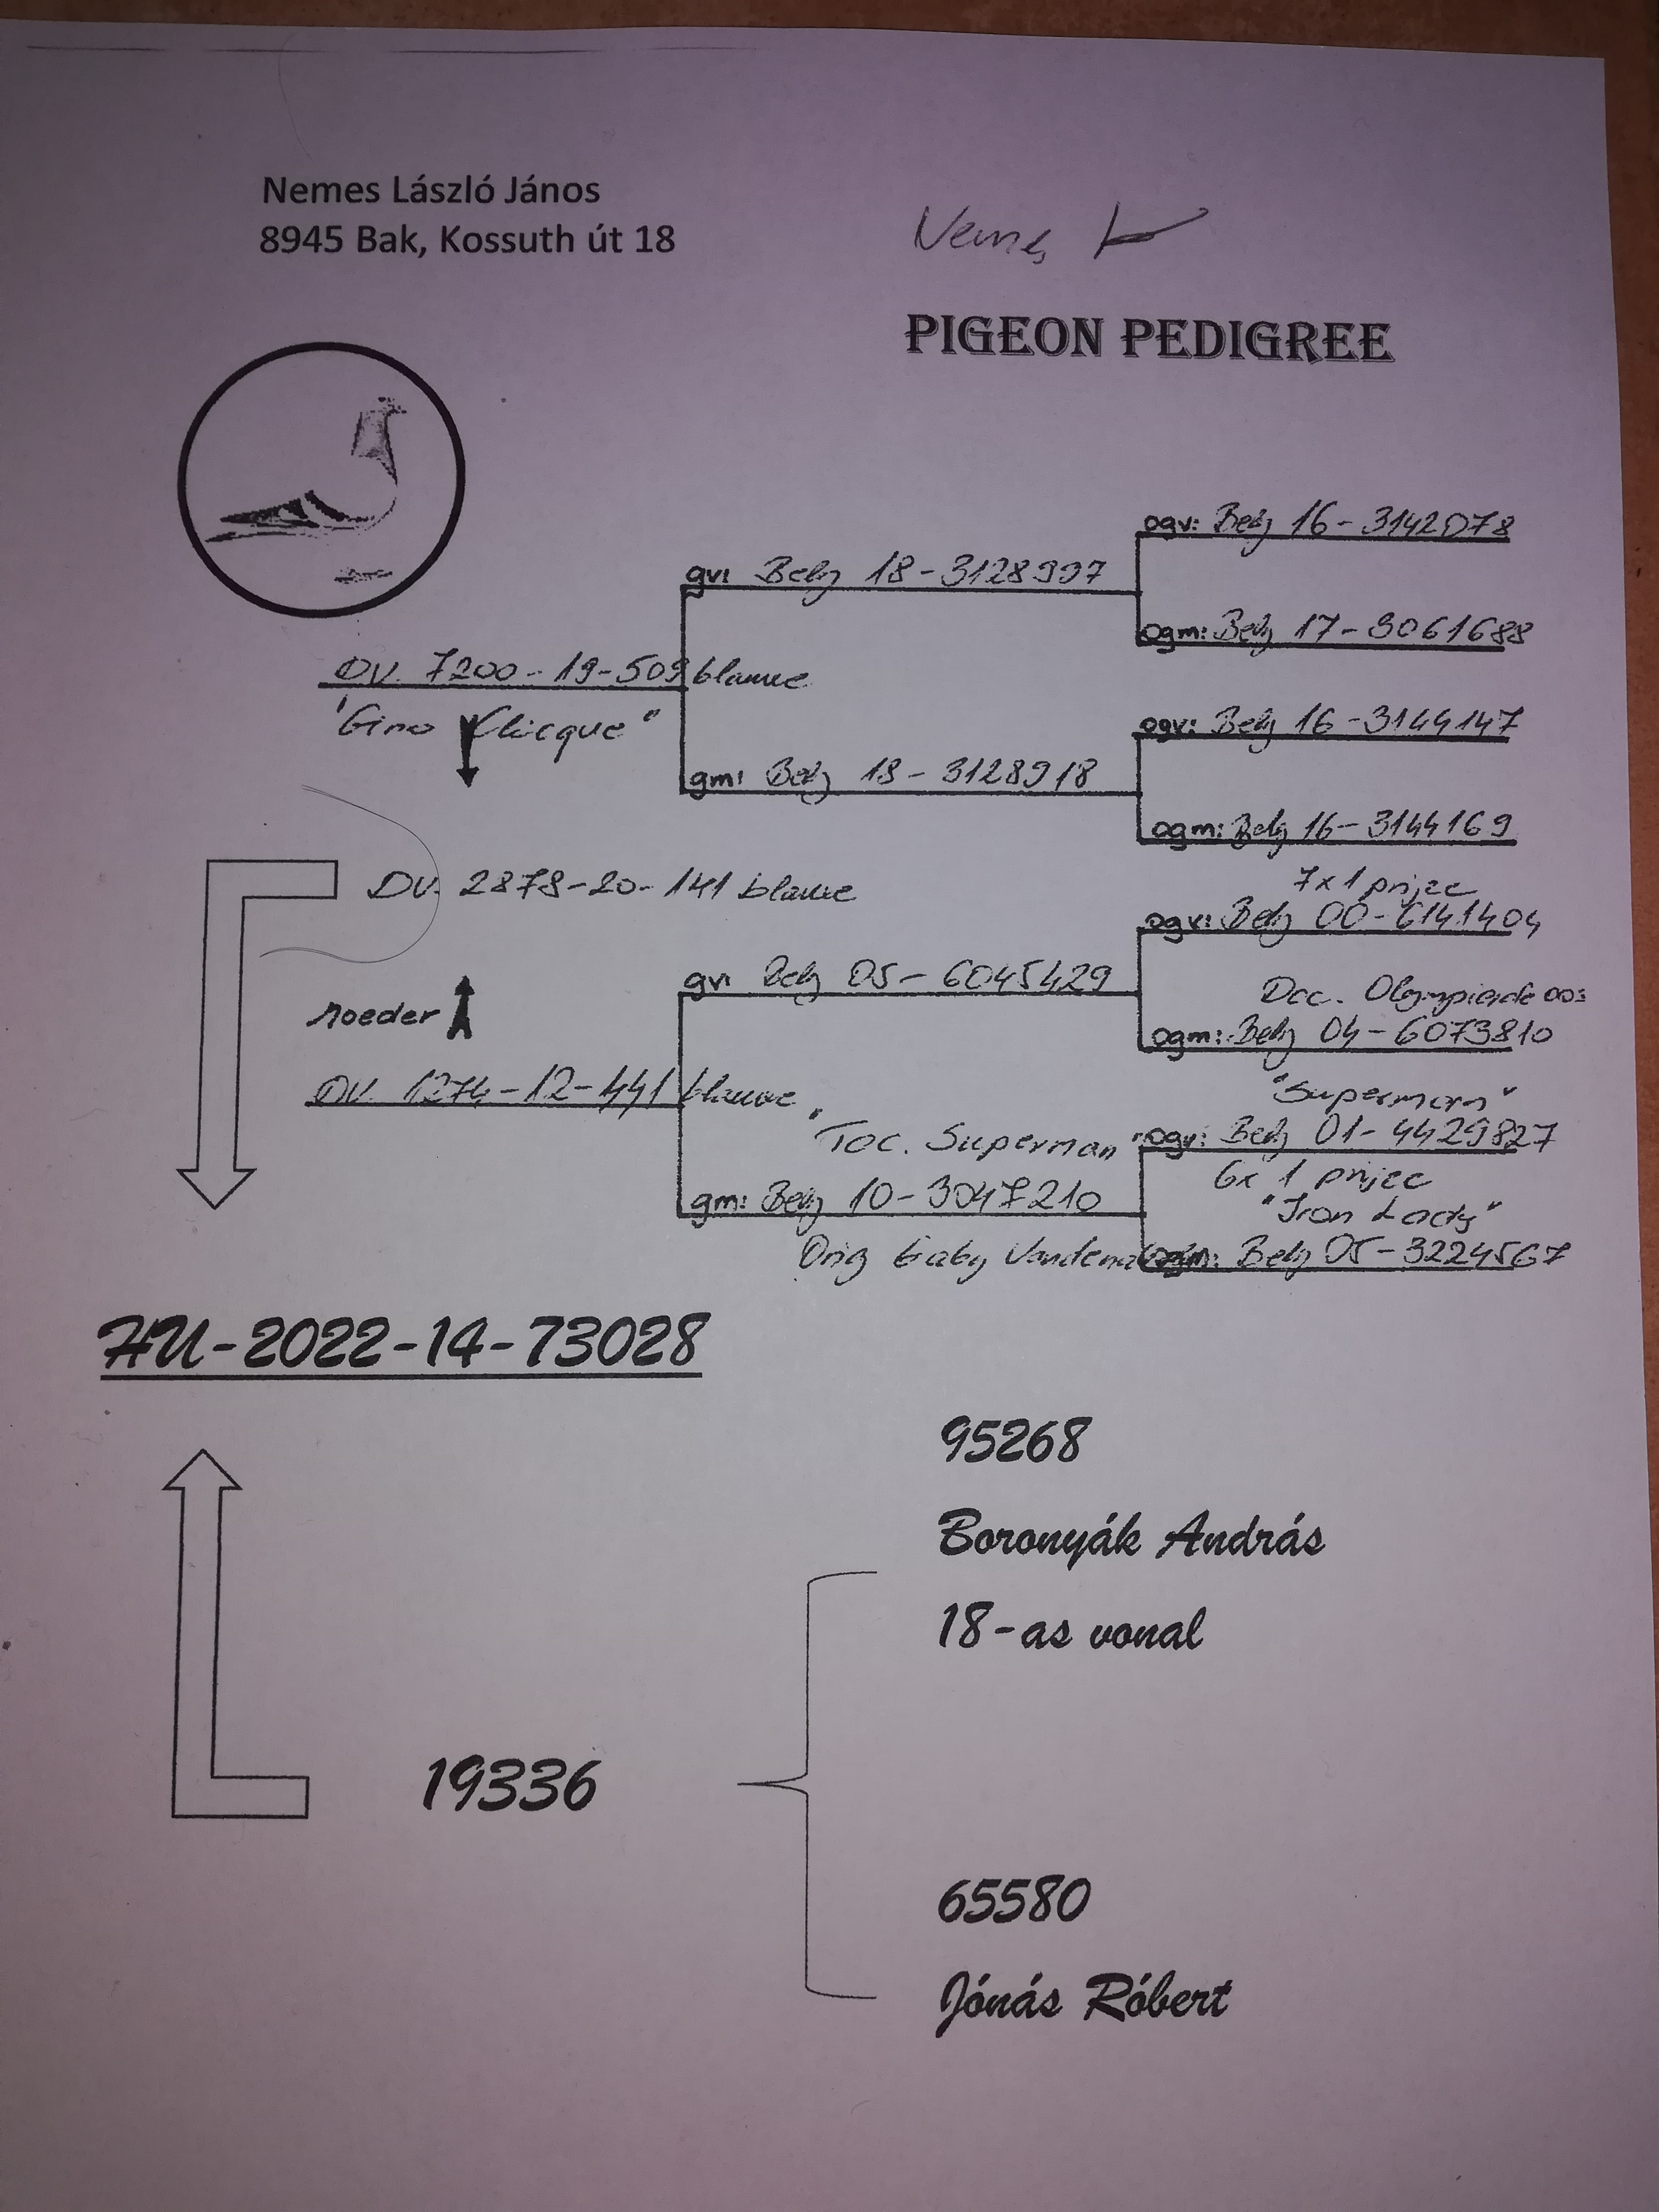 Nemes László János
8945 Bak, Kossuth út 18
Nemes
PIGEON PEDIGREE
ogv: Belg 16-3142078
gv: Belg 18-3128997
ogm: Belg 17-3061688
DV. 7200-19-509 blauwe
"Gino Clicque"
ogv: Belg 16-3144147
gm: Belg 18-3128918
ogm: Belg 16-3144169
DV. 2878-20-141 blauwe
7x1 prijze
ogv: Belg 00-6141404
gv: Belg 05-6045429
Dcc. Olympiade 003
moeder
ogm: Belg 04-6073810
DV. 1274-12-441 blauwe
"Superman"
"Toc. Superman"
ogv: Belg 01-4429827
6x 1 prijze
gm: Belg 10-3047210
"Iron Lady"
Orig Gaby
ogm: Belg 05-3224567
HU-2022-14-73028
95268
Boronyák András
18-as vonal
19336
65580
Jónás Róbert